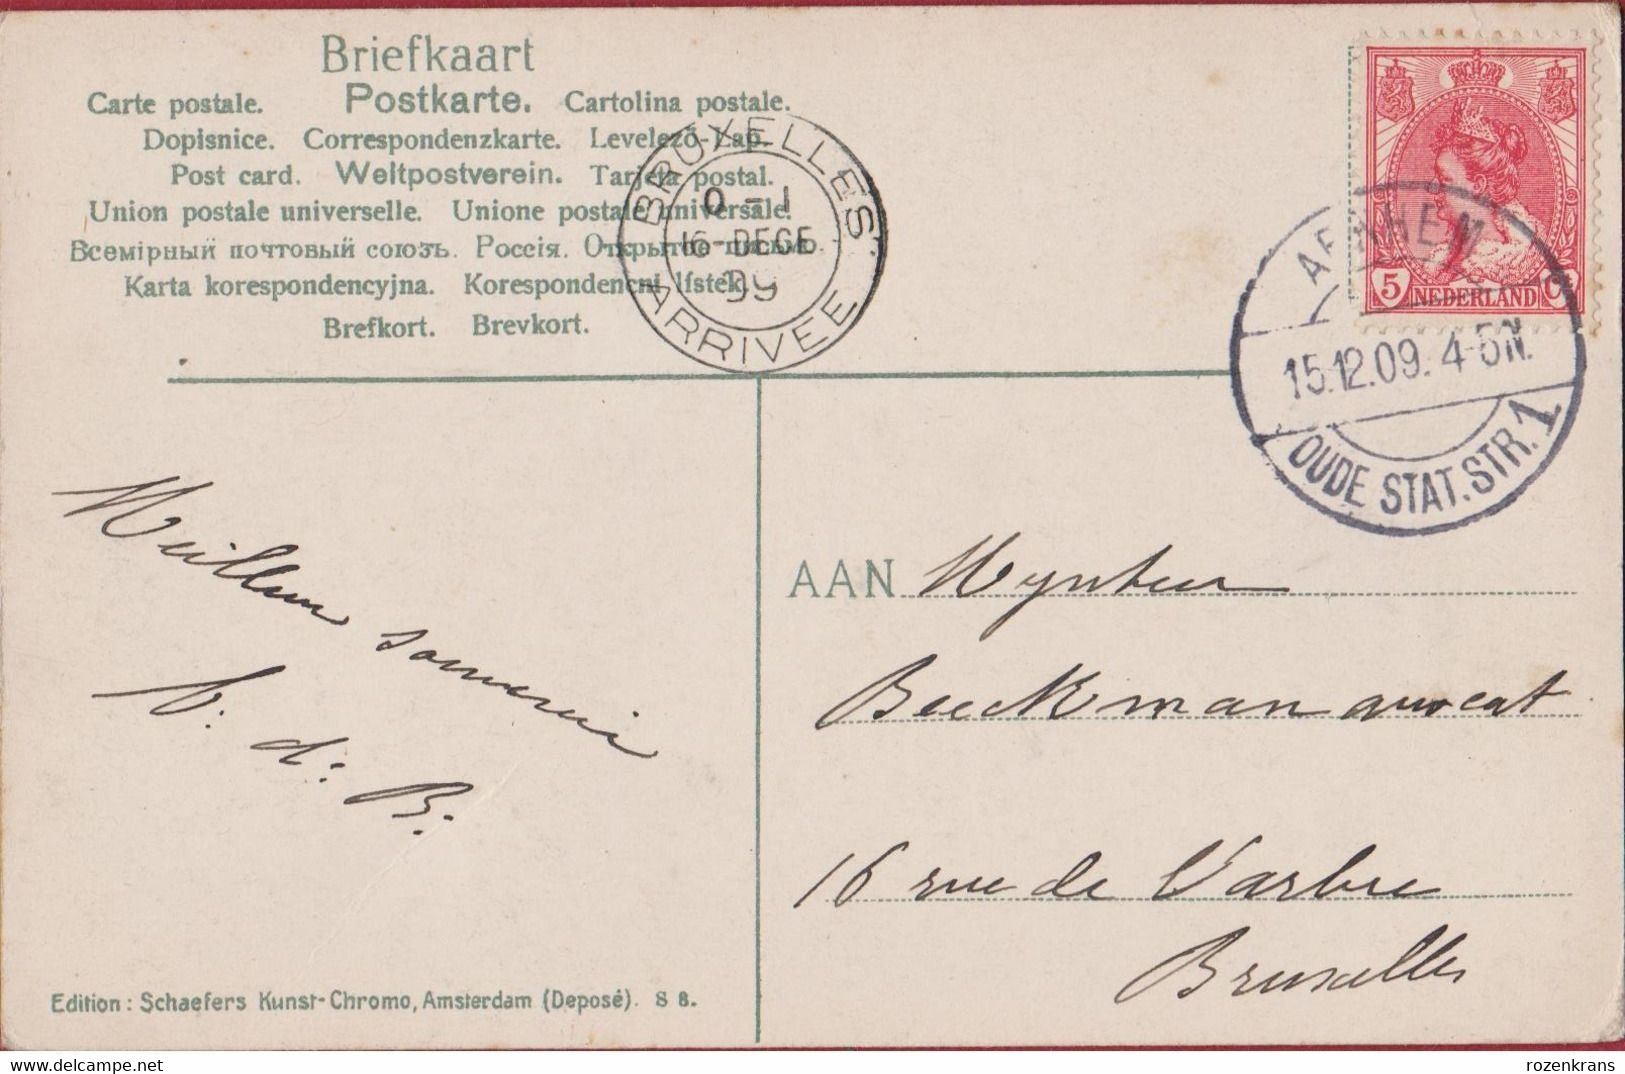 Briefkaart
Carte postale. Postkarte. Cartolina postale.
Dopisnice. Correspondenzkarte. Levelező-Lap.
Post card. Weltpostverein. Tarjeta postal.
Union postale universelle. Unione postale universale.
Всемірный почтовый союзъ. Россія. Открытое письмо.
Karta korespondencyjna. Korespondencni lístek.
Brefkort. Brevkort.
BRUXELLES
0 - 1
16-DECE
09
ARRIVEE
5 NEDERLAND Ct
ARNHEM
15.12.09. 4-5N.
OUDE STAT. STR. 1
Meilleur souvenir
d. B.
AAN Mynheer
Beeckman avocat
16 rue de l'arbre
Bruxelles
Edition: Schaefers Kunst-Chromo, Amsterdam (Deposé). S 8.
delcampe.net
rozenkrans